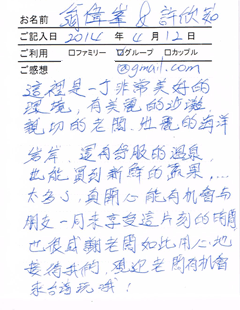 お名前 翁偉業 & 許欣知
ご記入日 2014 年 4 月 12 日
ご利用 □ファミリー ☑グループ □カップル
ご感想 @gmail.com
這裡是一个非常美好的
環境，有美麗的沙灘，
親切的老闆，壯麗的海洋
生岸，還有舒服的溫泉，
也能買到新鮮的蔬果，...
太多了，真開心能有机會与
朋友一同來享受這片刻的時間
也很感謝老闆如此用心地
接待我們，歡迎老闆有机會
來台灣玩哦！